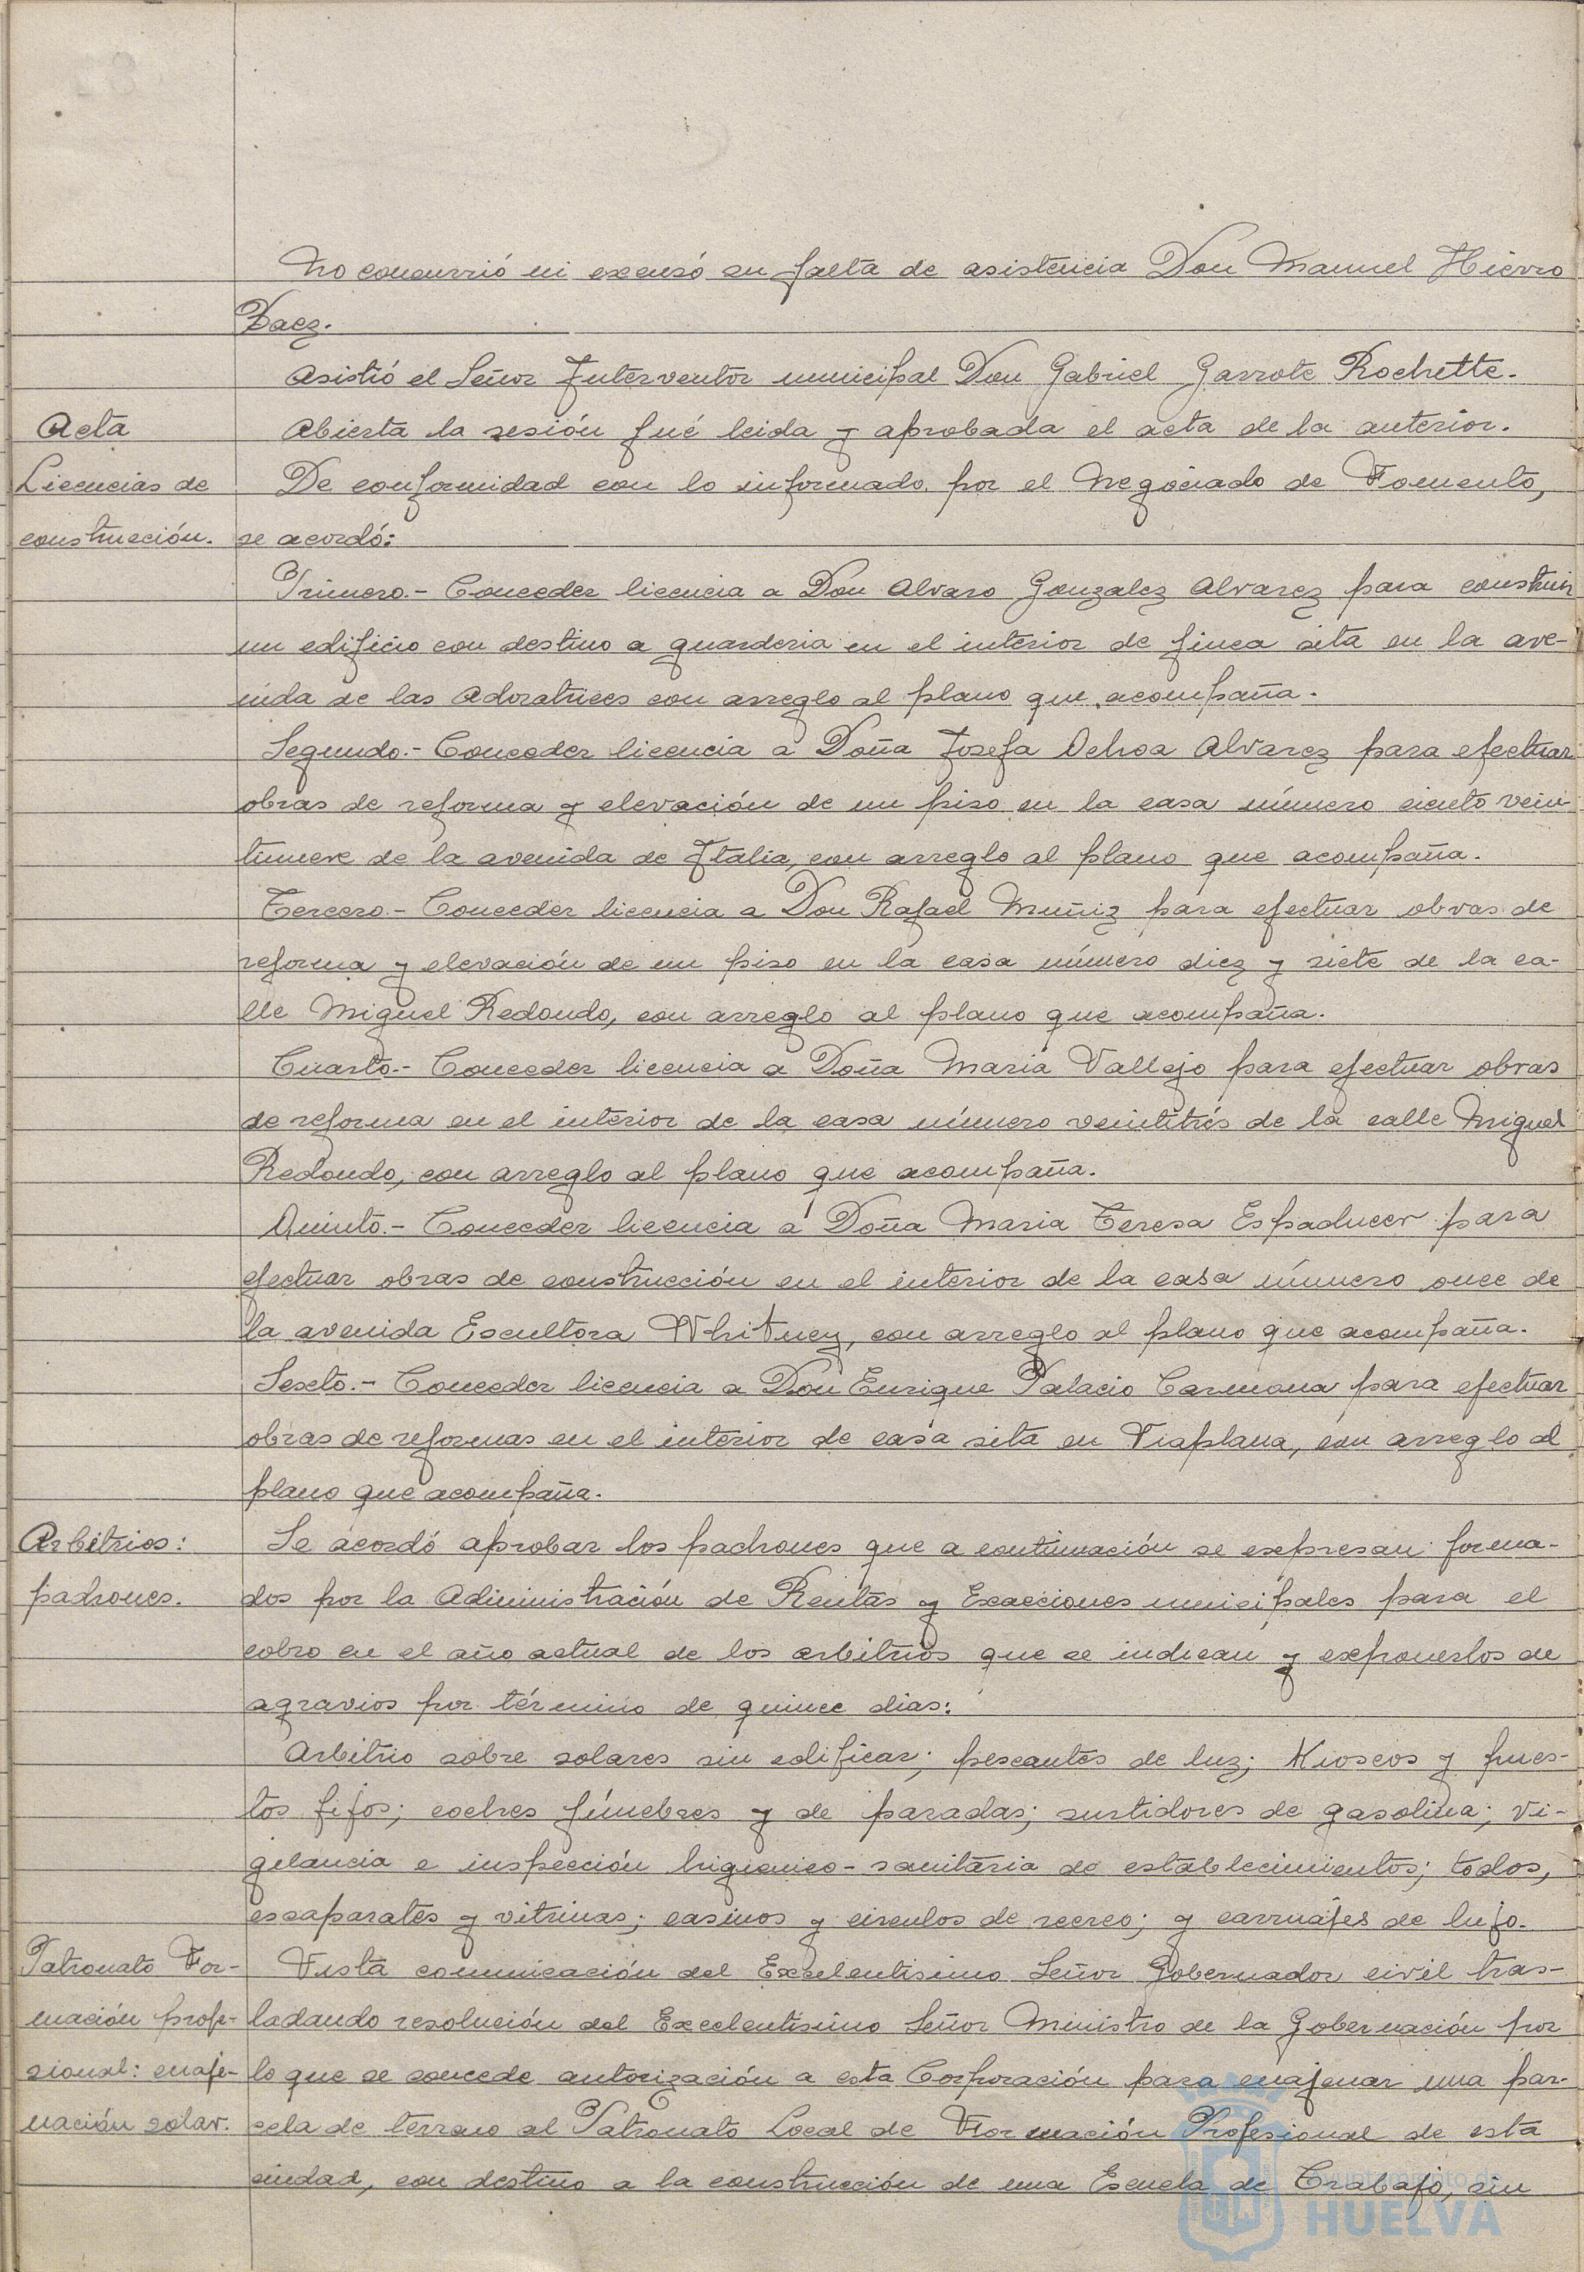 No concurrió ni excusó su falta de asistencia Don Manuel Hierro
Baez.
Asistió el Señor Interventor municipal Don Gabriel Garrote Rochette.
Acta
Abierta la sesión fué leida y aprobada el acta de la anterior.
Licencias de
construcción.
De conformidad con lo informado por el Negociado de Fomento,
se acordó:
Primero.- Conceder licencia a Don Alvaro Gonzalez Alvarez para construir
un edificio con destino a guarderia en el interior de finca sita en la ave-
nida de las Adoratrices con arreglo al plano que acompaña.
Segundo.- Conceder licencia a Doña Josefa Ochoa Alvarez para efectuar
obras de reforma y elevación de un piso en la casa número ciento vein-
tinueve de la avenida de Italia, con arreglo al plano que acompaña.
Tercero.- Conceder licencia a Don Rafael Muñiz para efectuar obras de
reforma y elevación de un piso en la casa número diez y siete de la ca-
lle Miguel Redondo, con arreglo al plano que acompaña.
Cuarto.- Conceder licencia a Doña Maria Vallejo para efectuar obras
de reforma en el interior de la casa número veintitrés de la calle Miguel
Redondo, con arreglo al plano que acompaña.
Quinto.- Conceder licencia a Doña Maria Teresa Espaducer para
efectuar obras de construcción en el interior de la casa número once de
la avenida Escultora Whitney, con arreglo al plano que acompaña.
Sexto.- Conceder licencia a Don Enrique Palacio Carmona para efectuar
obras de reformas en el interior de casa sita en Viaplana, con arreglo al
plano que acompaña.
Arbitrios:
padrones.
Se acordó aprobar los padrones que a continuación se expresan forma-
dos por la Administración de Rentas y Exacciones municipales para el
cobro en el año actual de los arbitrios que se indican y exponerlos de
agravios por término de quince dias:
Arbitrio sobre solares sin edificar; pescantes de luz; Kioscos y pues-
tos fijos; coches fúnebres y de paradas; surtidores de gasolina; vi-
gilancia e inspección higienico-sanitaria de establecimientos; todos,
escaparates y vitrinas; casinos y circulos de recreo; y carruajes de lujo.
Patronato For-
mación profe-
sional: enaje-
nación solar.
Vista comunicación del Excelentisimo Señor Gobernador civil tras-
ladando resolución del Excelentisimo Señor Ministro de la Gobernación por
lo que se concede autorización a esta Corporación para enajenar una par-
cela de terreno al Patronato Local de Formación Profesional de esta
ciudad, con destino a la construcción de una Escuela de Trabajo, sin
Ayuntamiento de
HUELVA